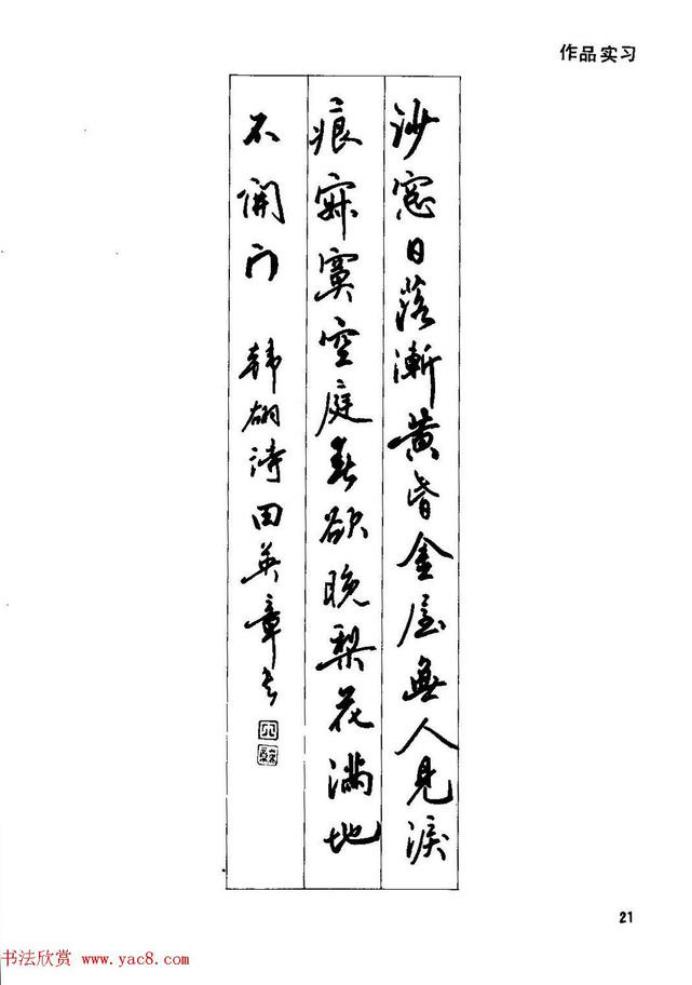 作品实习
沙窓日落漸黄昏金屋無人見淚
痕寂寞空庭春欲晚梨花满地
不開门 韩翃诗田英章书
21
书法欣赏 www.yac8.com